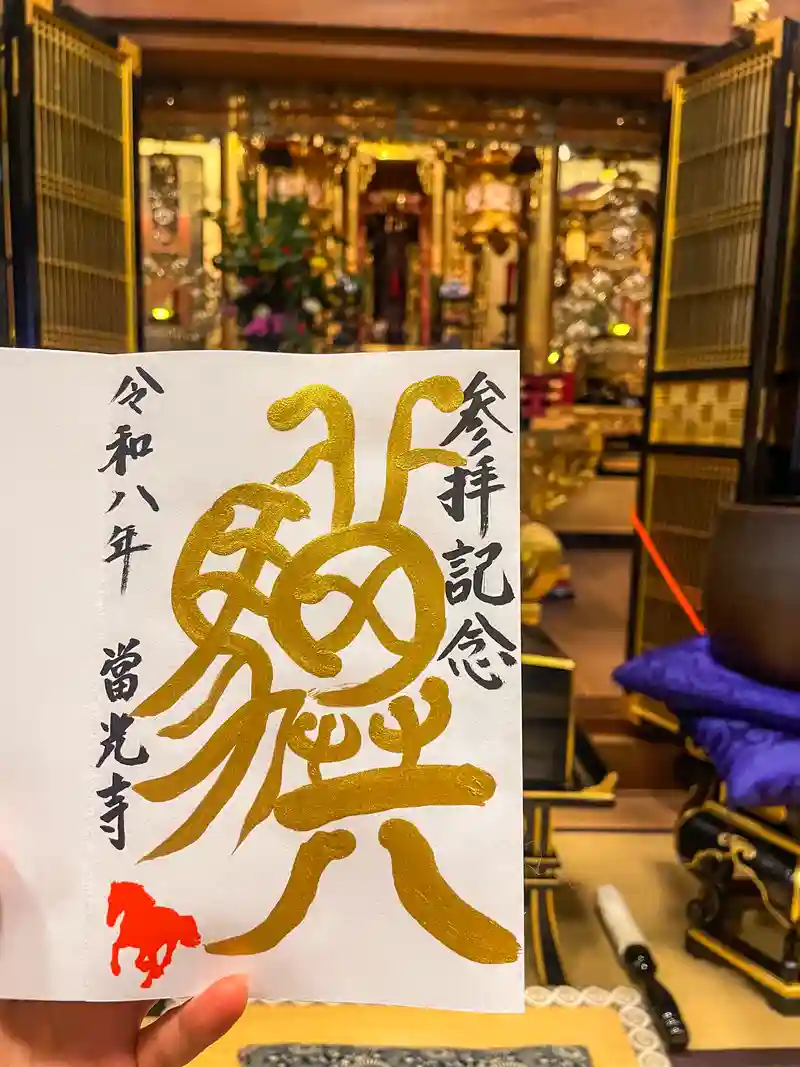 参拝記念
驥
令和八年 當光寺